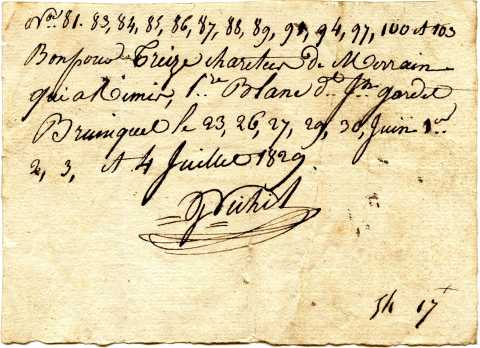 Nos. 81. 83, 84, 85, 86, 87, 88, 89, 91, 94, 97, 100 et 103
Bon pour de Treize charetées de Merrain
qui a Remis, Sr. Blanc dt. garde
Bruniquel le 23, 26, 27, 29, 30, Juin 1er
2, 3, et 4 Juillet 1829.
54 17